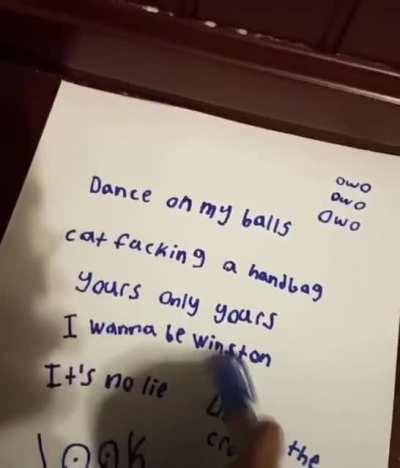 owo
owo
owo
Dance on my balls
cat facking a handbag
yours only yours
I wanna be winston
It's no lie
the
look